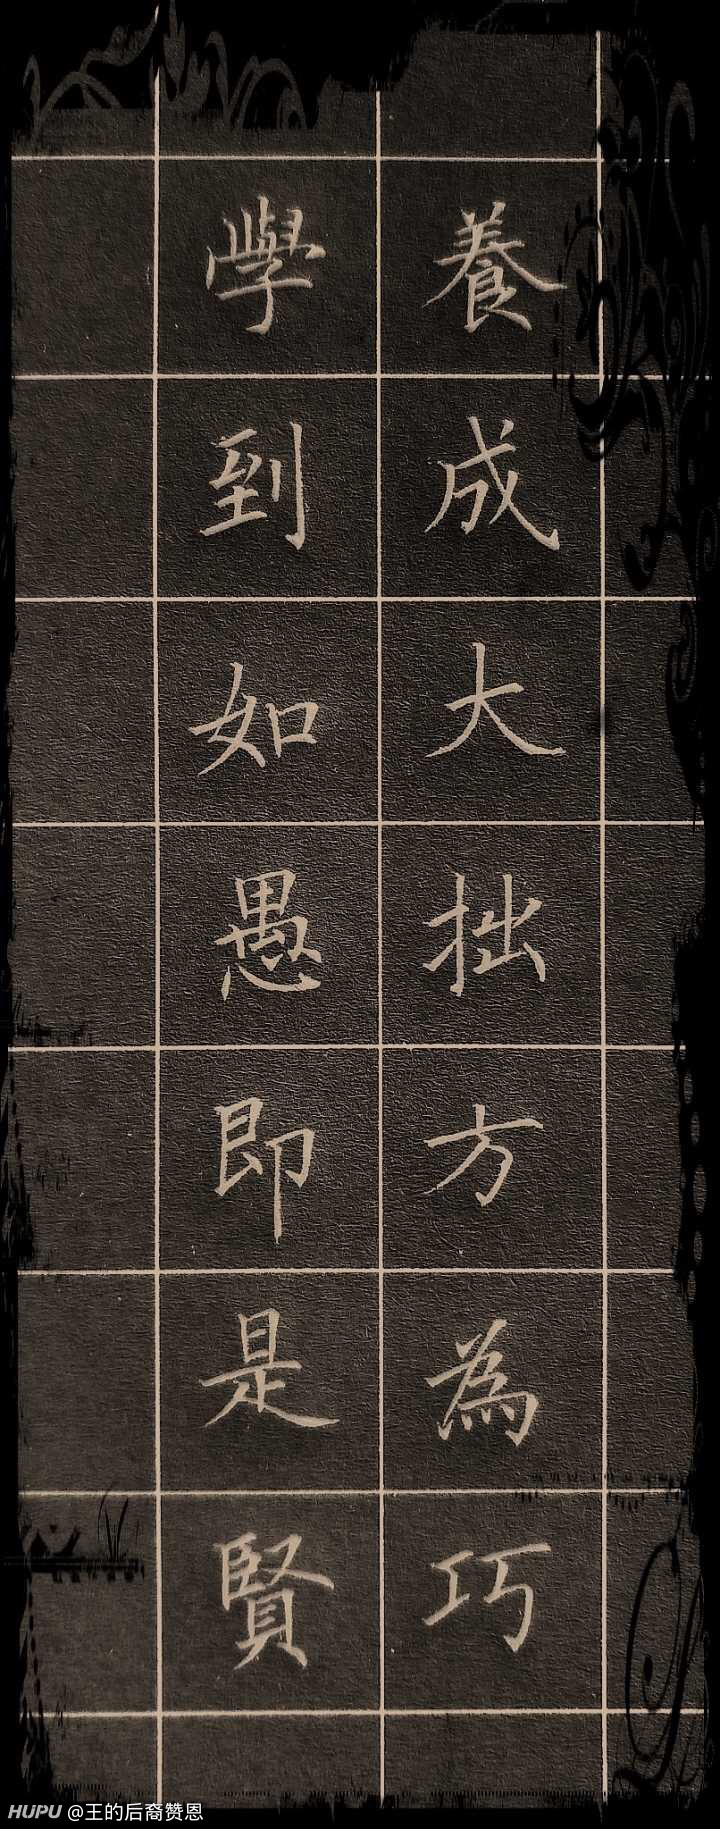 養成大拙方為巧
學到如愚即是賢
HUPU @王的后裔赞恩